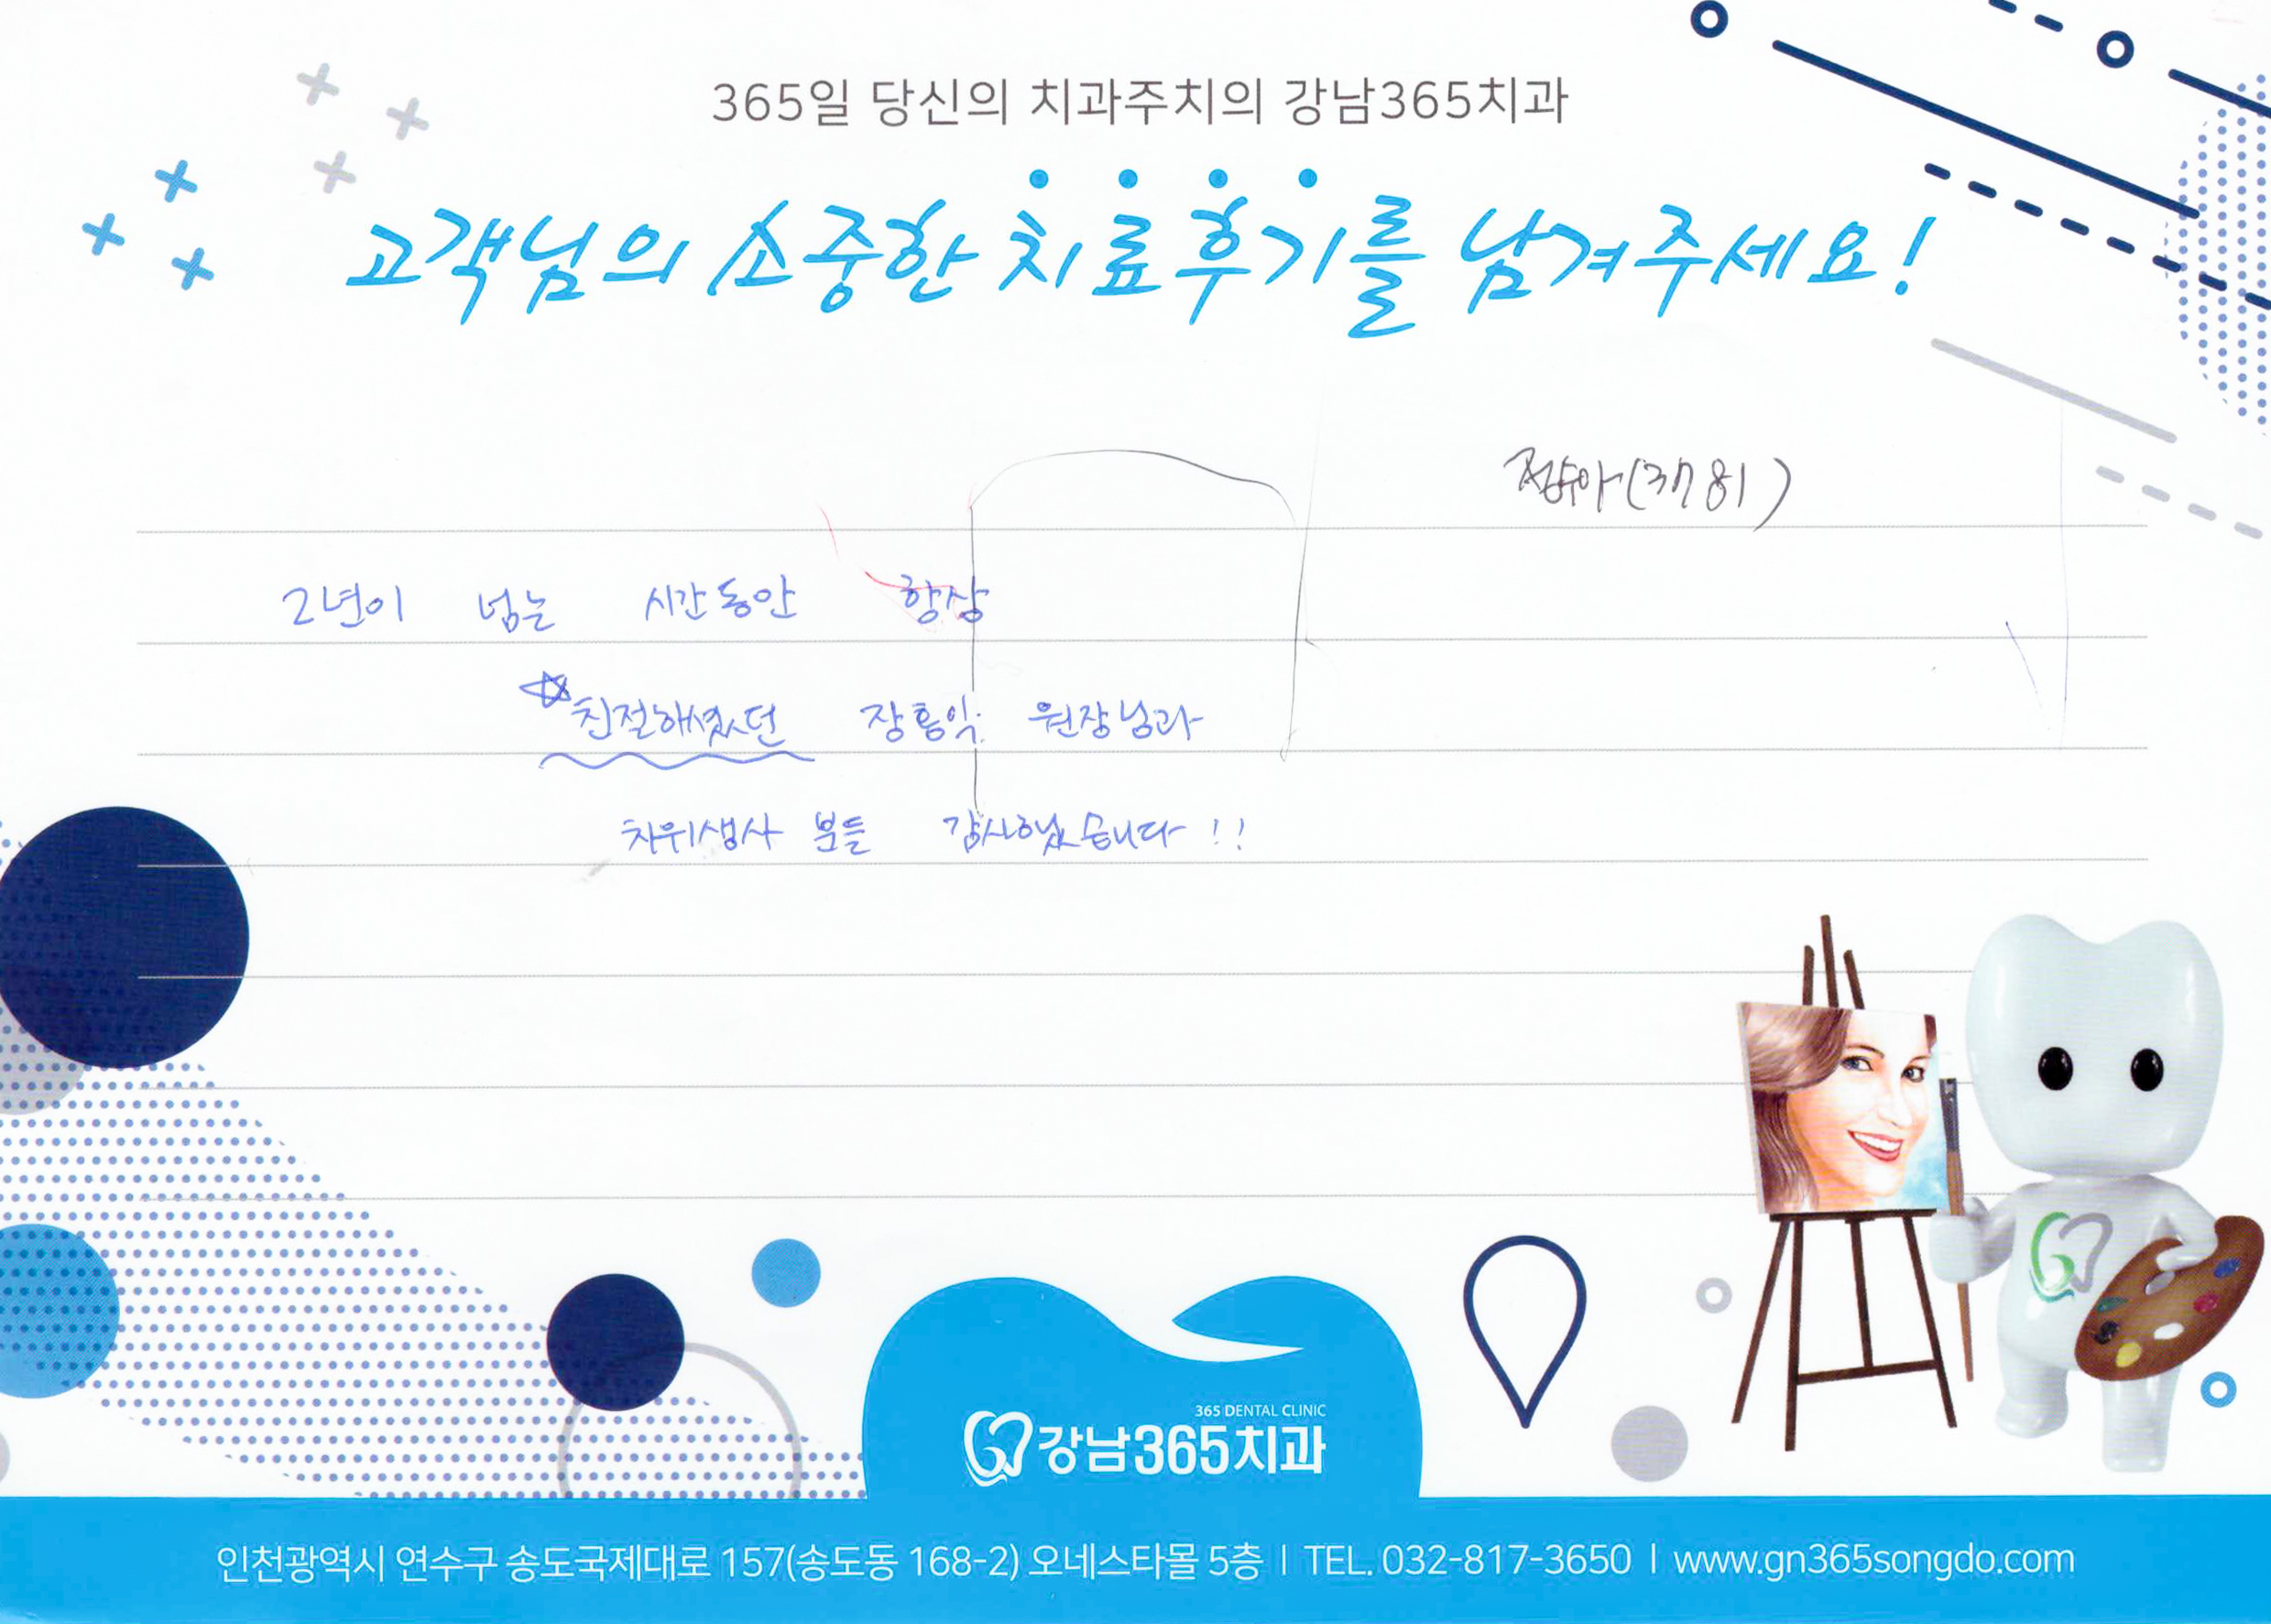 365일 당신의 치과주치의 강남365치과
고객님의 소중한 치료후기를 남겨주세요!
(3781)
2년이 넘는 시간동안 항상
친절하셨던 장흥익 원장님과
치위생사 분들 감사했습니다!!
365 DENTAL CLINIC
강남365치과
인천광역시 연수구 송도국제대로 157(송도동 168-2) 오네스타몰 5층 | TEL. 032-817-3650 | www.gn365songdo.com